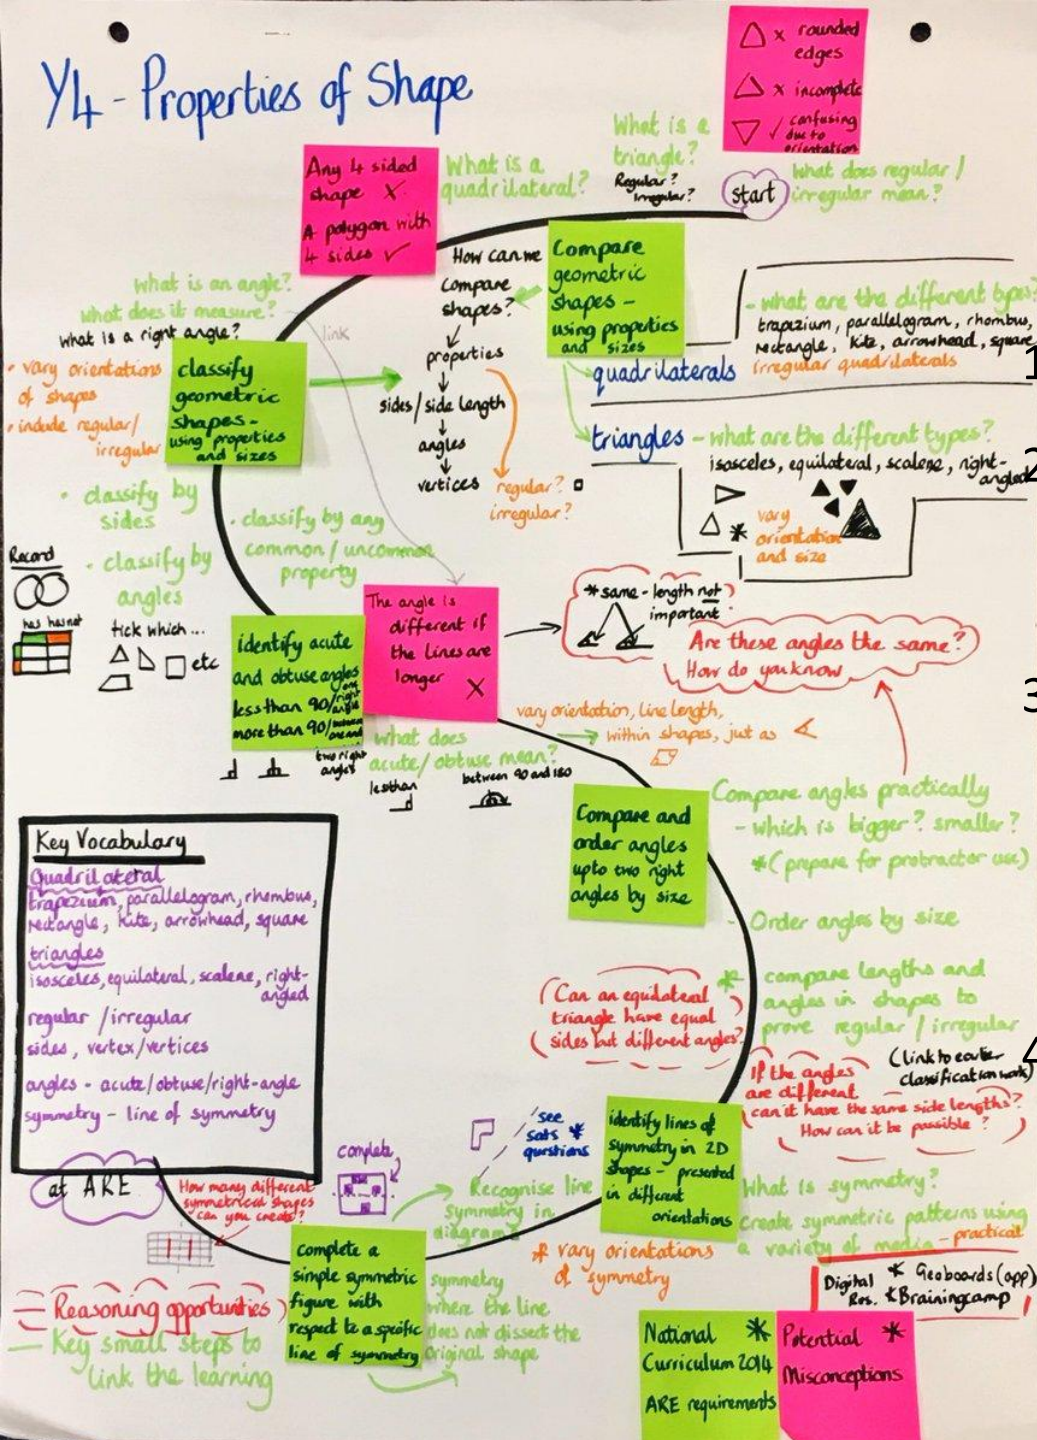 Y4 - Properties of Shape
x rounded
edges
x incomplete
✓ confusing
due to
orientation
What is a
triangle?
Regular?
Irregular?
start
What does regular/
irregular mean?
Any 4 sided
shape X
A polygon with
4 sides ✓
What is a
quadrilateral?
How can we
compare
shapes?
properties
sides/side length
angles
vertices
regular?
irregular?
Compare
geometric
shapes -
using properties
and sizes
- what are the different types?
trapezium, parallelogram, rhombus,
rectangle, kite, arrowhead, square
irregular quadrilaterals
quadrilaterals
1
triangles - what are the different types?
isosceles, equilateral, scalene, right-
angled
2
* vary
orientation
and size
What is an angle?
what does it measure?
what is a right angle?
link
• vary orientations
of shapes
• include regular/
irregular
classify
geometric
shapes -
using properties
and sizes
• classify by
sides
• classify by any
common/uncommon
property
• classify by
angles
Record
has has not
tick which...
etc
identify acute
and obtuse angles
less than 90/one right angle
more than 90/between one and
two right
angles
The angle is
different if
the lines are
longer
X
* same - length not
important
Are these angles the same?
How do you know
3
vary orientation, line length,
within shapes, just as
what does
acute/obtuse mean?
less than
between 90 and 180
Compare and
order angles
upto two right
angles by size
Compare angles practically
- which is bigger? smaller?
* (prepare for protractor use)
- Order angles by size
* compare lengths and
angles in shapes to
prove regular/irregular
Can an equilateral
triangle have equal
sides but different angles?
If the angles
are different
can it have the same side lengths?
How can it be possible?
(link to earlier
classification work)
4
Key Vocabulary
Quadrilateral
trapezium, parallelogram, rhombus,
rectangle, kite, arrowhead, square
triangles
isosceles, equilateral, scalene, right-
angled
regular /irregular
sides, vertex/vertices
angles - acute/obtuse/right-angle
symmetry - line of symmetry
at ARE
How many different
symmetrical shapes
can you create?
complete
see
sats *
questions
identify lines of
symmetry in 2D
shapes - presented
in different
orientations
What is symmetry?
create symmetric patterns using
a variety of media - practical
Recognise line
symmetry in
diagrams
* vary orientations
of symmetry
complete a
simple symmetric
figure with
respect to a specific
line of symmetry
symmetry
where the line
does not dissect the
original shape
Digital * Geoboards (app)
Res. * Brainingcamp
Reasoning opportunities
Key small steps to
link the learning
National *
Curriculum 2014
ARE requirements
Potential *
Misconceptions